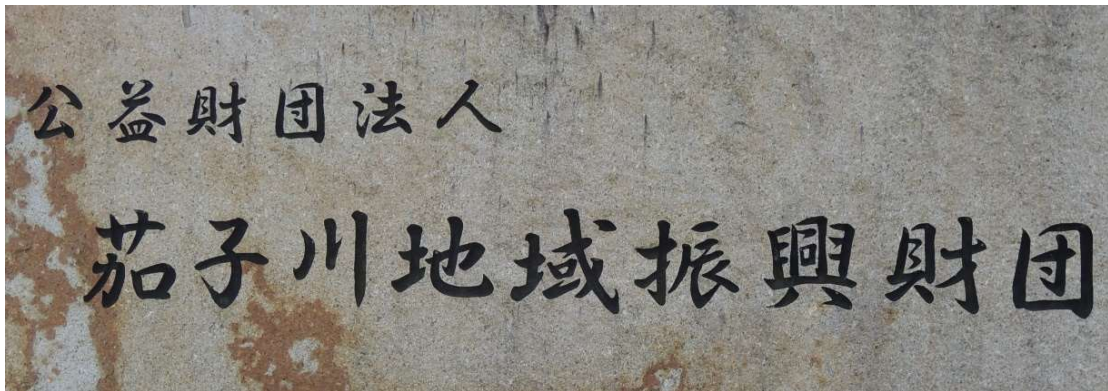 公益財団法人
茄子川地域振興財団